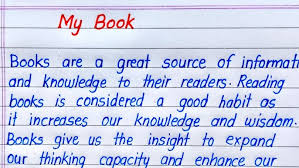 My Book
Books are a great source of informati
and knowledge to their readers. Reading
books is considered a good habit as
it increases our knowledge and wisdom.
Books give us the insight to expand
our thinking capacity and enhance our